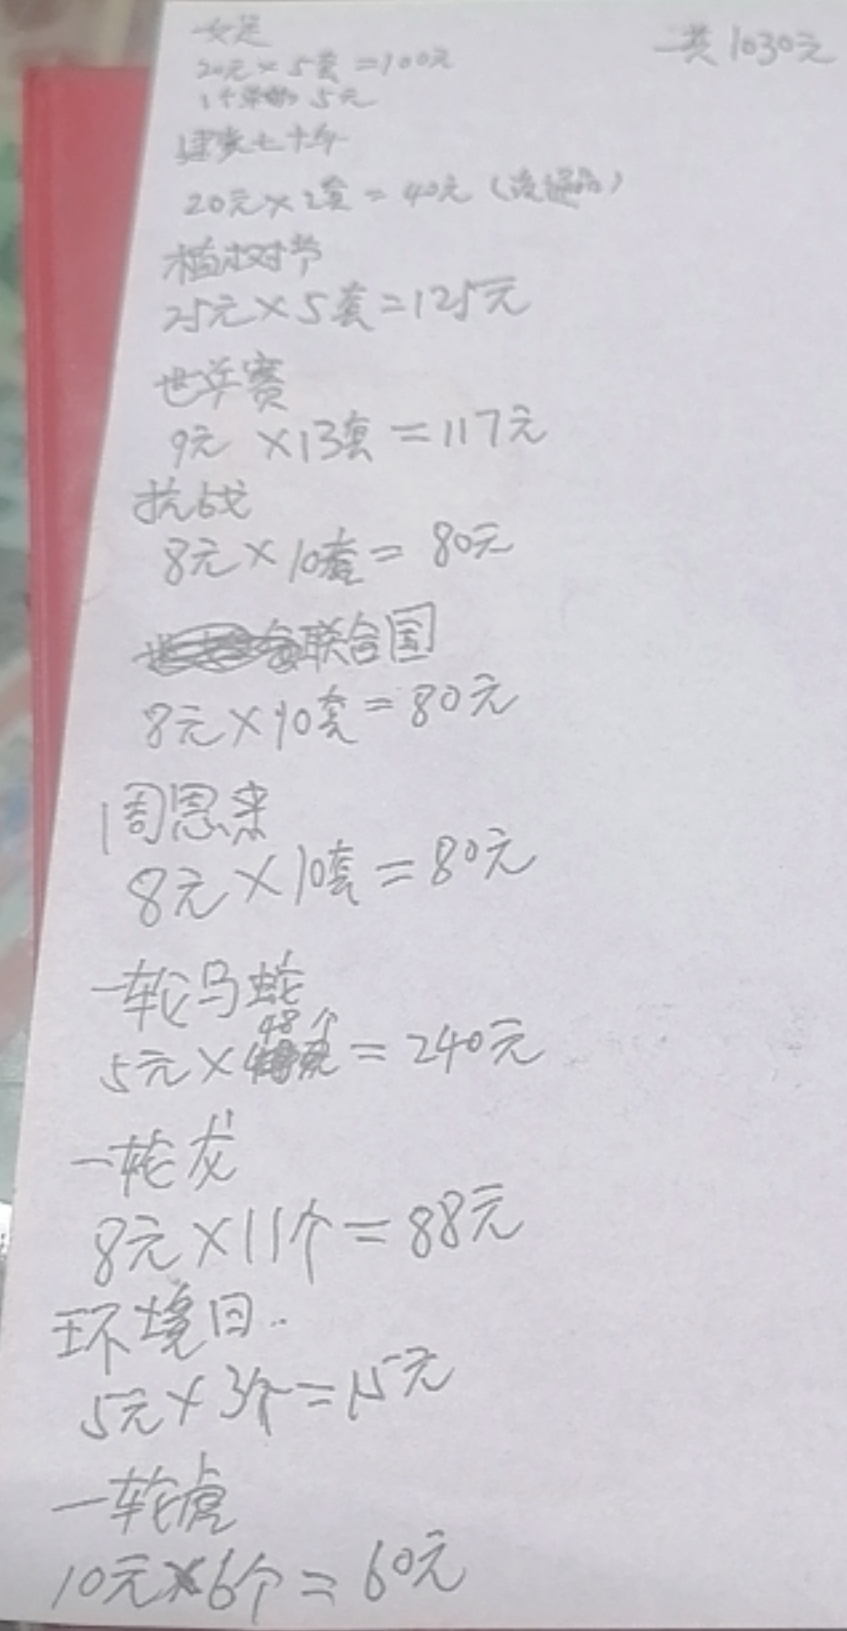 一共1030元
女足
20元×5套=100元
1个单的 5元
建党七十年
20元×2套=40元(流通品)
植树节
25元×5套=125元
世乒赛
9元×13套=117元
抗战
8元×10套=80元
联合国
8元×10套=80元
周恩来
8元×10套=80元
一轮马蛇
48个
5元×=240元
一轮龙
8元×11个=88元
环境日..
5元×3个=15元
一轮虎
10元×6个=60元